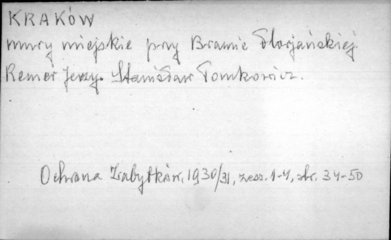 KRAKÓW
mury miejskie przy Bramie Florjańskiej
Remer Jerzy. Stanisław Tomkowicz.
Ochrona Zabytków, 1930/31, zesz. 1-4, str. 34-50